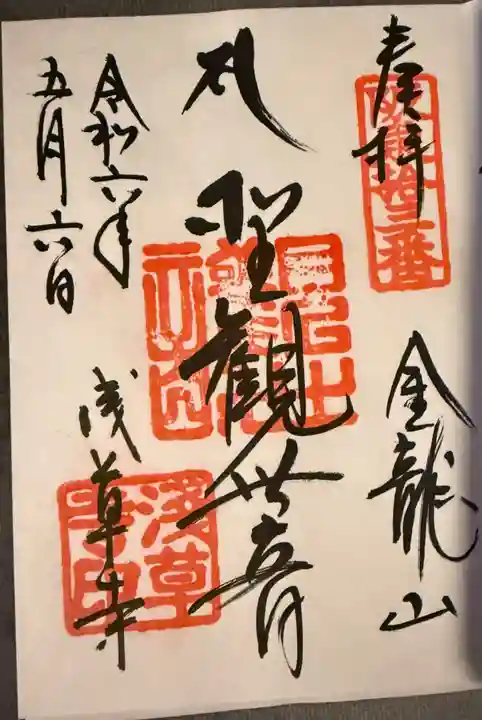 奉拝
坂東拾三番
金龍山
聖観世音
令和六年
五月六日
浅草寺
淺草寺印